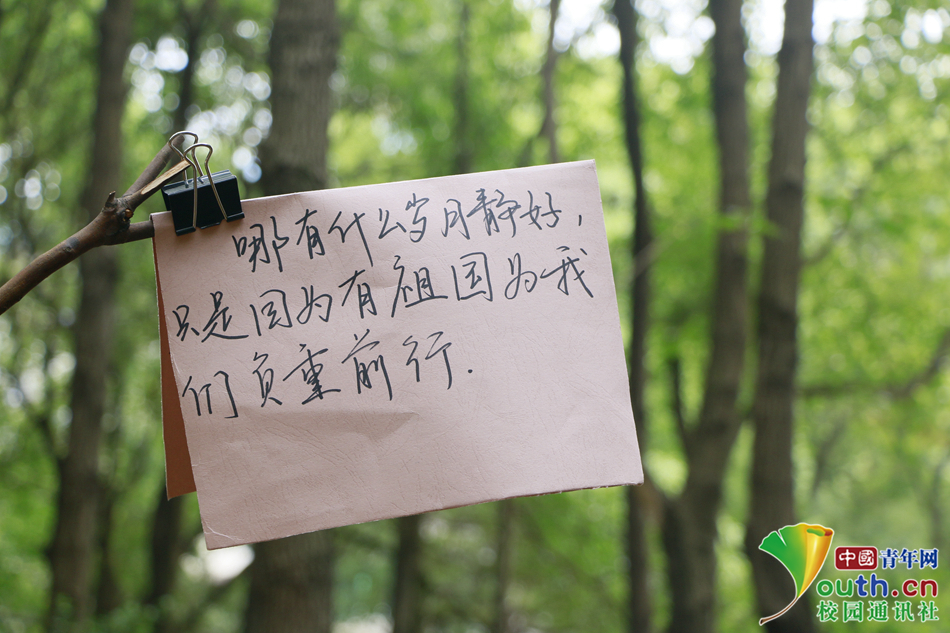 哪有什么岁月静好,
只是因为有祖国为我
们负重前行.
中國青年网
outh.cn
校园通讯社